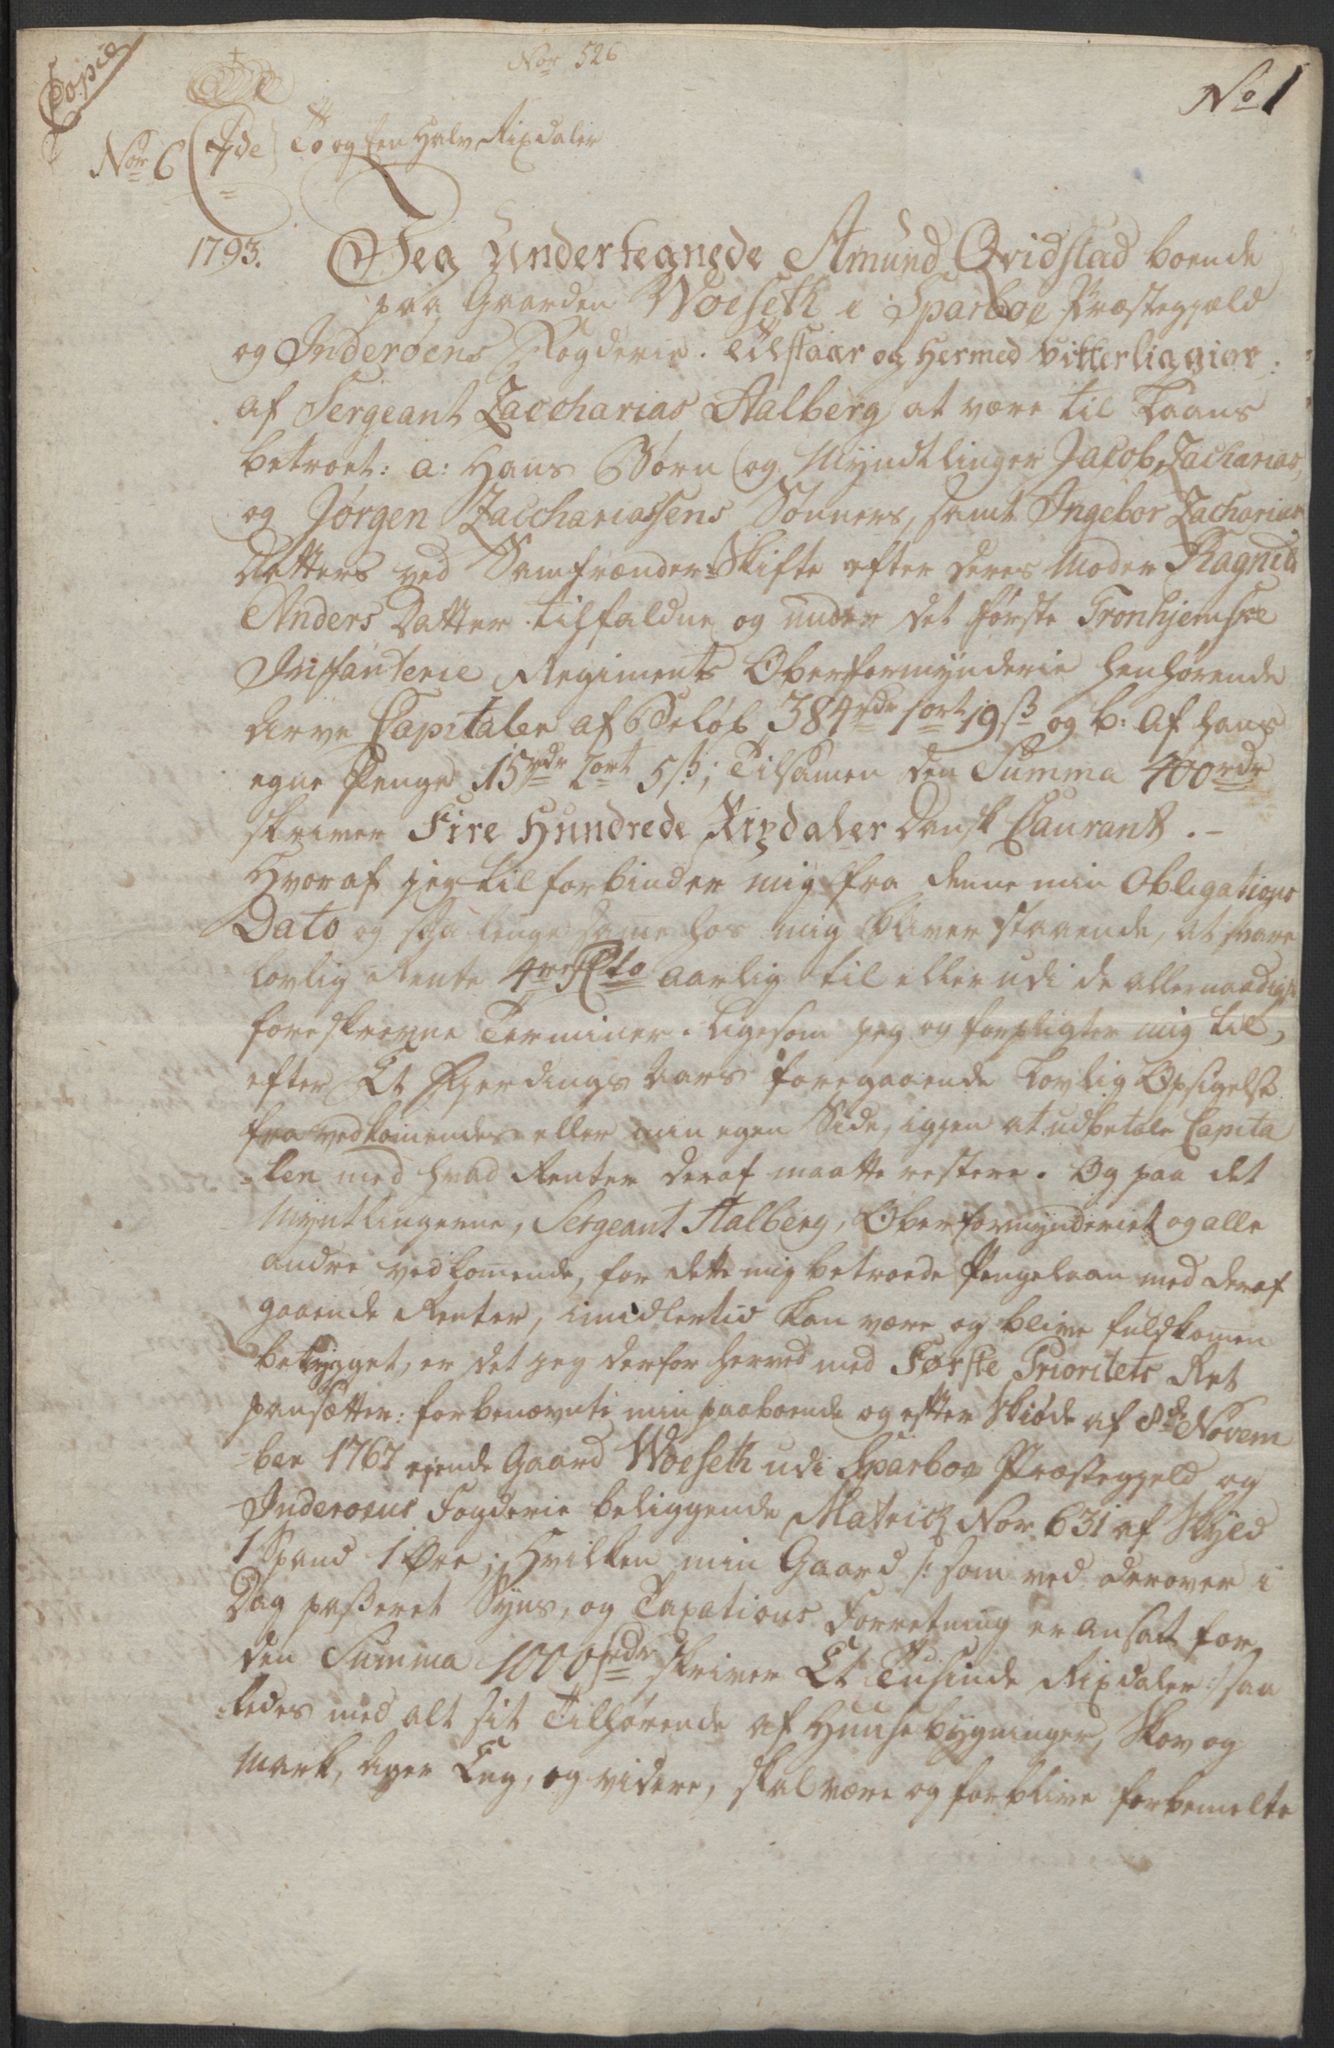 Copie
Nor 526
No 1
Nor 6 7de To og Een Halv Rixdaler
1793.
Jeg Undertegnede Amund Qvidstad boende
paa Gaarden Woeseth i Sparboe Præstegjæld
og Inderøens Fogderie. Tilstaar og hermed vitterliggiør:
af Sergeant Zaccharias Aalberg at være til Laans
betroet: a: Hans Børn og Myndtlinger Jacob Zacharias,
og Jørgen Zacchariassens Sønners, samt Ingebor Zacharias
Datters ved Samfrænder-Skifte efter deres Moder Ragnild
Anders Datter tilfaldne og under det første Tronhjemske
Infanterie Regiments Oberformynderie henhørende
Arve Capitaler af Beløb 384 rdr 1 ort 19 ß og b: af hans
egne Penge 15 rdr 2 ort 5 ß; Tilsamen den Summa 400 rdr
skriver Fire Hundrede Rixdaler Dansk Courant. -
Hvoraf jeg tilforbinder mig fra denne min Obligations
Dato og saa lenge same hos mig bliver staaende, at svare
lovlig Rente 4re Pto aarlig til eller udi de allernaadigst
foreskrevne Terminer. Ligesom jeg og forpligter mig til,
efter Et Fjerdings Aars foregaaende Lovlig Opsigelse
fra vedkomendes eller min egen Side, igjen at udbetale Capita
-len med hvad Renter deraf maatte restere. Og paa det
Myntlingerne, Sergeant Aalberg, Oberformynderiet og alle
andre vedkomende, for dette mig betroede Pengelaan med deraf
gaaende Renter, imidlertid kan være og blive fuldkomen
betrygget, er det jeg derfor herved med Første Prioritets Ret
pansætter: forbenævnte min paaboende og efter Skiøde af 8de Novem
-ber 1767 ejende Gaard Woeseth udi Sparboe Præstegjeld og
Inderøens Fogderie beliggende Matricz Nor 631 af Skyld
1 Spand 1 Øre; Hvilken min Gaard /: som ved derover i
Dag passeret Syns, og Taxations Forretning er ansat for
den Summa 1000 rdr skriver Et Tusinde Rixdaler :/ saa
-ledes med alt sit Tilhørende af Huuse bygninger, Skov og
Mark, Ager Eng, og videre, skal være og forblive forbemelte